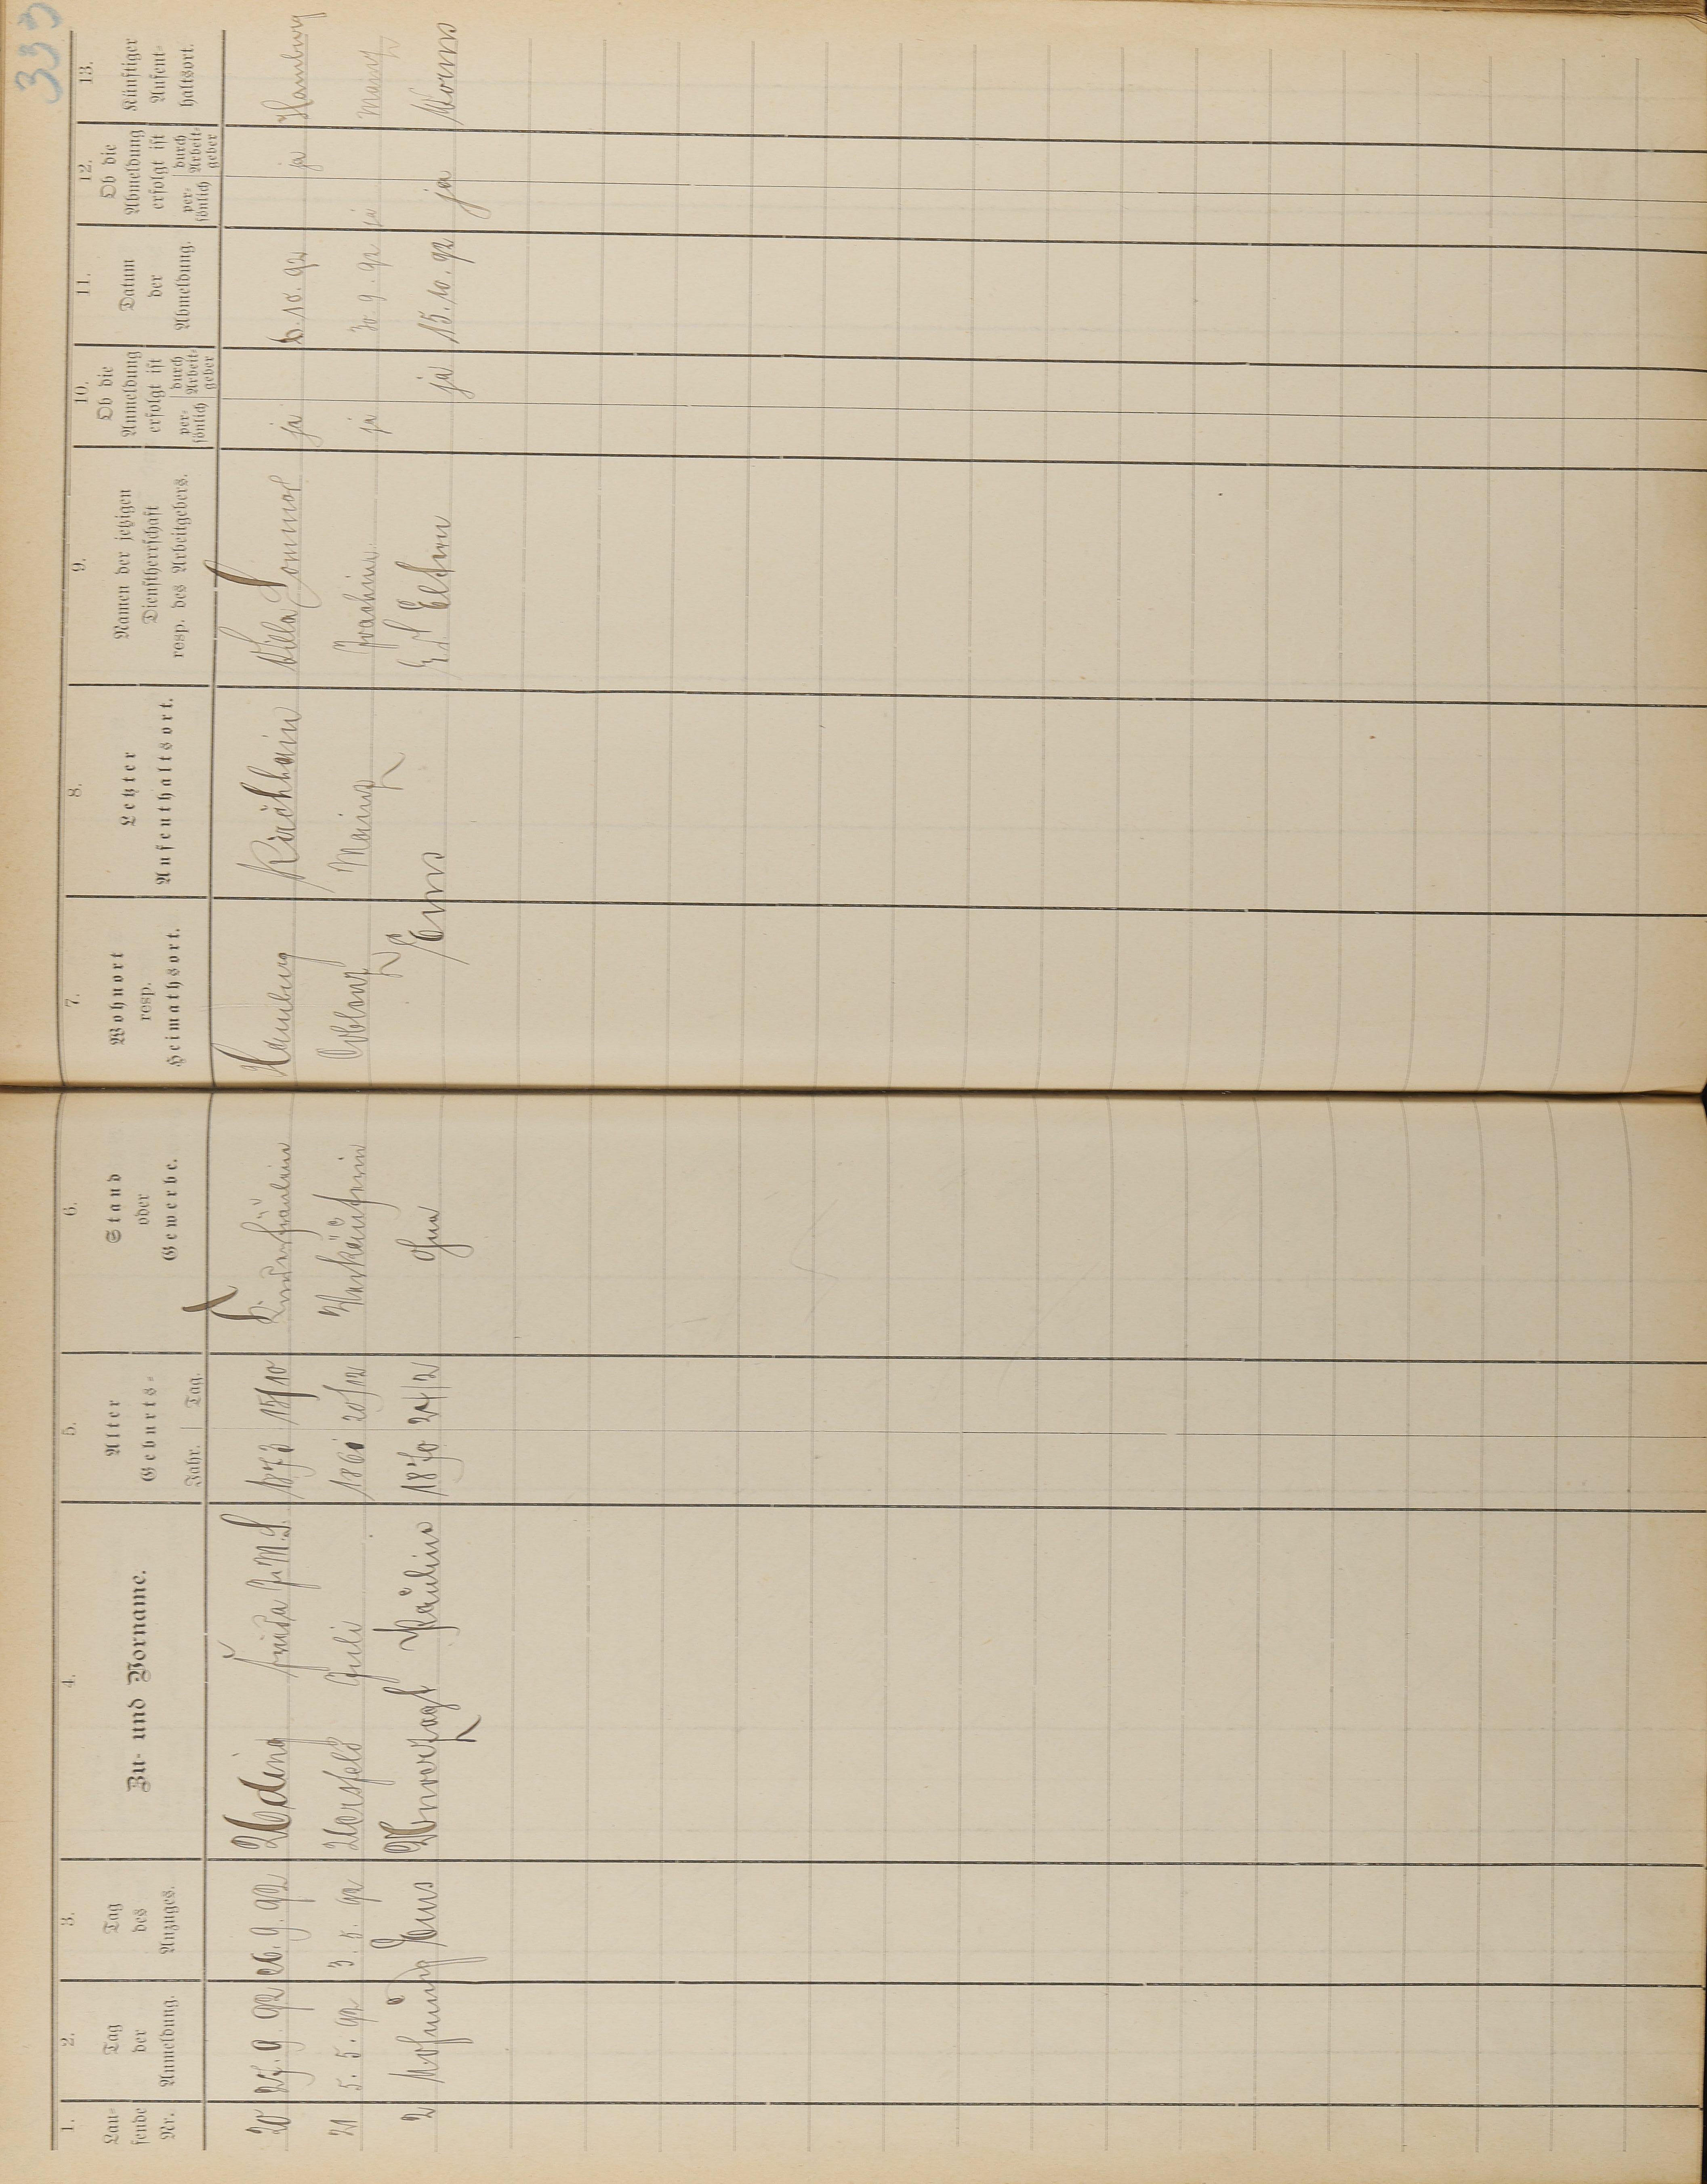 333
1. Laufende Nr.
2. Tag der Anmeldung.
3. Tag des Anzuges.
4. Zu- und Vorname.
5. Alter Geburts- Jahr. Tag.
6. Stand oder Gewerbe.
7. Wohnort resp. Heimathsort.
8. Letzter Aufenthaltsort.
9. Namen der jetzigen Dienstherrschaft resp. des Arbeitgebers.
10. Ob die Anmeldung erfolgt ist persönlich durch Arbeitgeber
11. Datum der Abmeldung.
12. Ob die Abmeldung erfolgt ist persönlich durch Arbeitgeber
13. Künftiger Aufenthaltsort.
20 27. 9. 92 26. 9. 92 Uding Frieda 1873 15/10 Kinderfräulein Hamburg Kirchhain Villa Pommer ja 6. 10. 92 ja Hamburg
21 5. 5. 92 3. 5. 92 Ursfeld Juli 186 20/12 Verkäuferin Coblenz Mainz Joachim ja 30. 9. 92 ja Mainz
2 Wohnung Ems Unverzagt Pauline 1870 24/2 ohne Ems Eltern ja 15. 10. 92 ja Worms